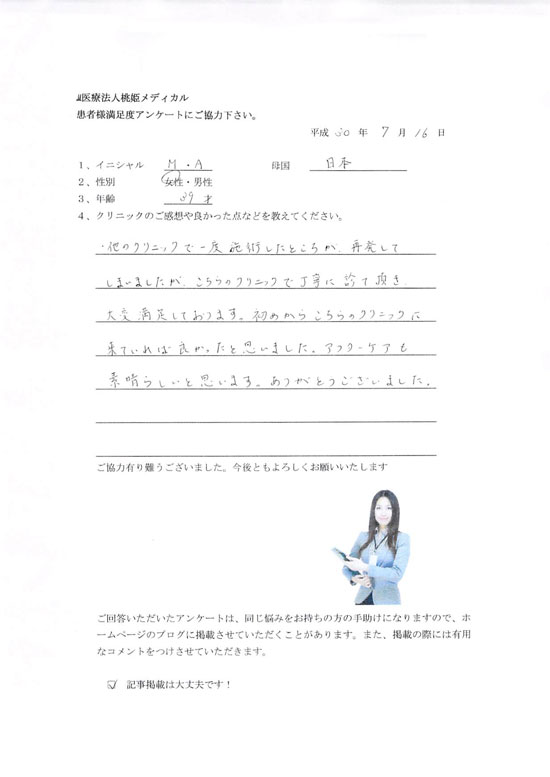 医療法人桃姫メディカル
患者様満足度アンケートにご協力下さい。
平成 30 年 7 月 16 日
1、イニシャル M・A 母国 日本
2、性別 女性・男性
3、年齢 39 才
4、クリニックのご感想や良かった点などを教えてください。
・他のクリニックで一度施術したところが、再発して
しまいましたが、こちらのクリニックで丁寧に診て頂き、
大変満足しております。初めからこちらのクリニックに
来ていれば良かったと思いました。アフターケアも
素晴らしいと思います。ありがとうございました。
ご協力有り難うございました。今後ともよろしくお願いいたします
ご回答いただいたアンケートは、同じ悩みをお持ちの方の手助けになりますので、ホ
ームページのブログに掲載させていただくことがあります。また、掲載の際には有用
なコメントをつけさせていただきます。
☑ 記事掲載は大丈夫です！